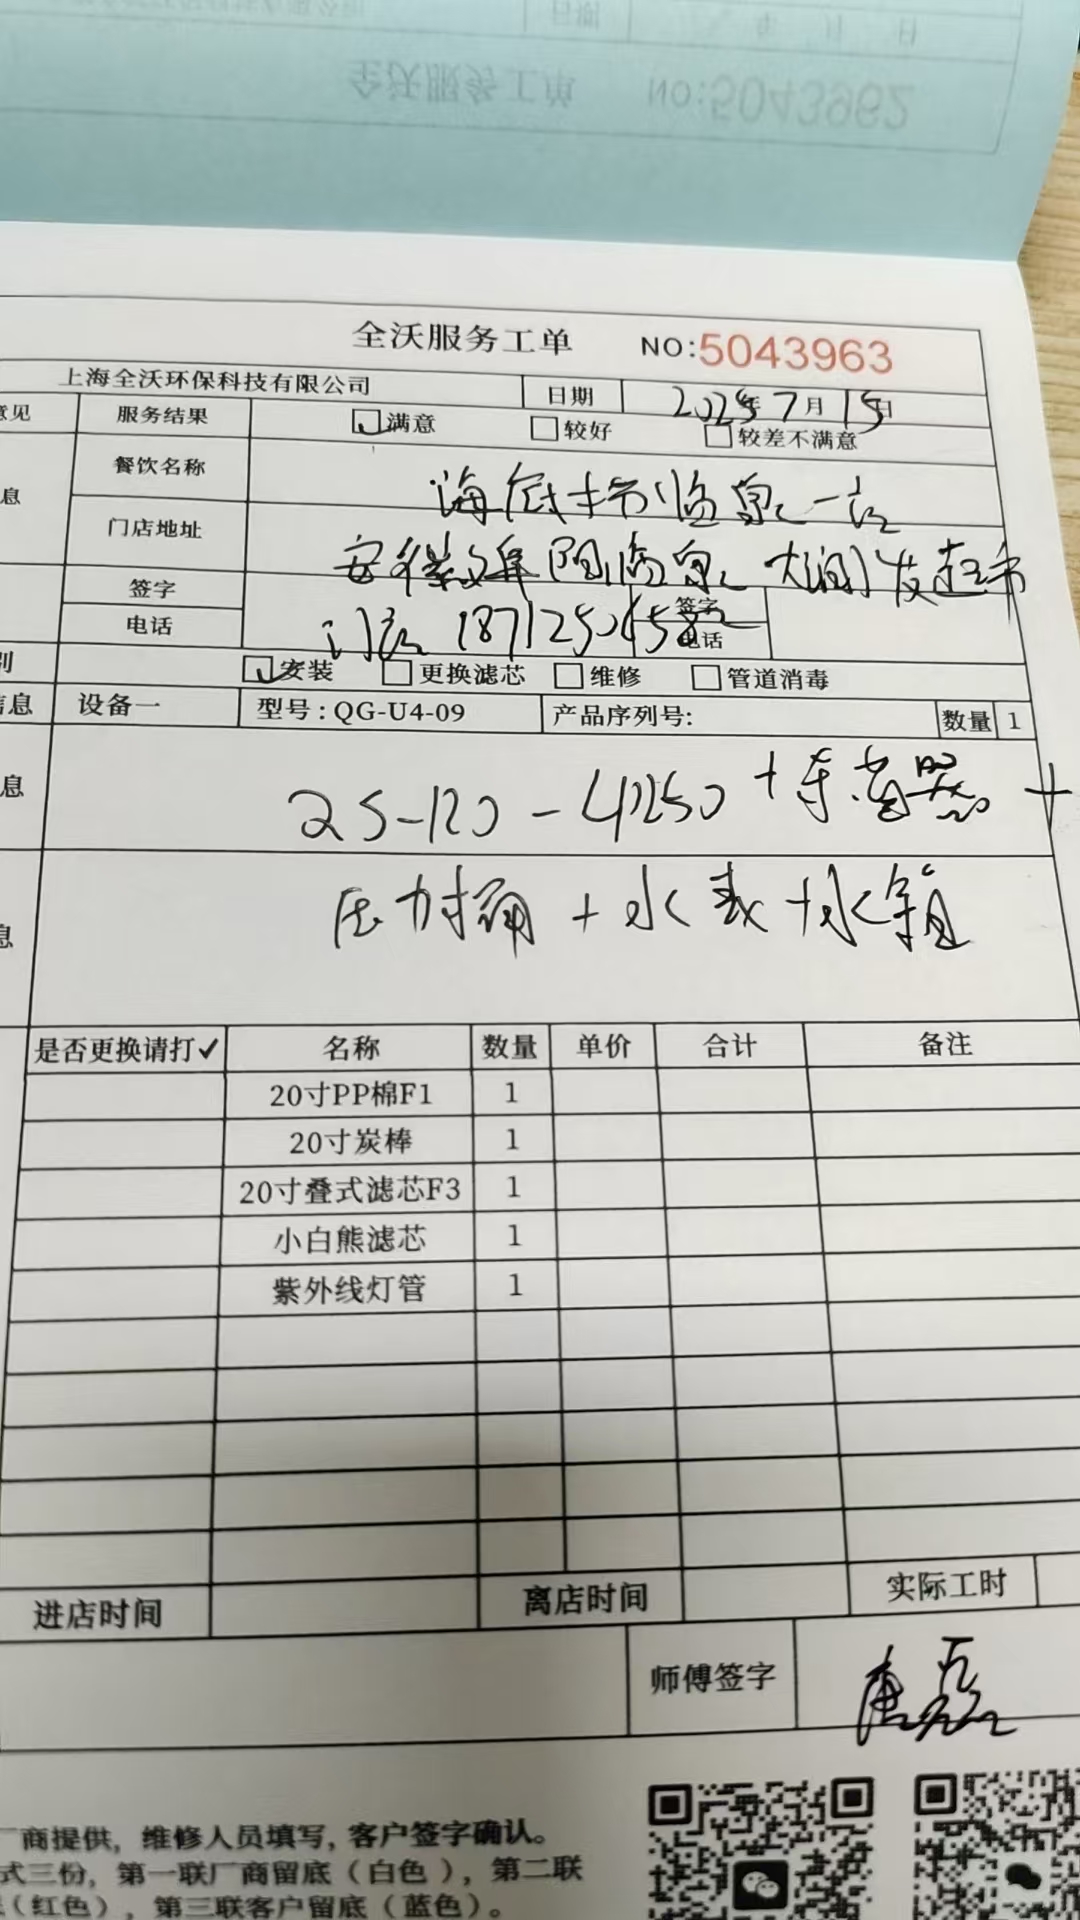 全沃服务工单 NO:5043962
全沃服务工单 NO:5043963
上海全沃环保科技有限公司 日期 2025年7月15日
意见 服务结果 满意 较好 较差不满意
息 餐饮名称 海底捞临泉一店
门店地址 安徽阜阳临泉大润发超市
签字 签字
电话 门店 电话
别 安装 更换滤芯 维修 管道消毒
信息 设备一 型号:QG-U4-09 产品序列号: 数量 1
息 25-120-4250+杀菌器+
息 压力桶+水表+水箱
是否更换请打✓ 名称 数量 单价 合计 备注
20寸PP棉F1 1
20寸炭棒 1
20寸叠式滤芯F3 1
小白熊滤芯 1
紫外线灯管 1
进店时间 离店时间 实际工时
师傅签字
厂商提供, 维修人员填写, 客户签字确认。
式三份, 第一联厂商留底(白色), 第二联
(红色), 第三联客户留底(蓝色)。